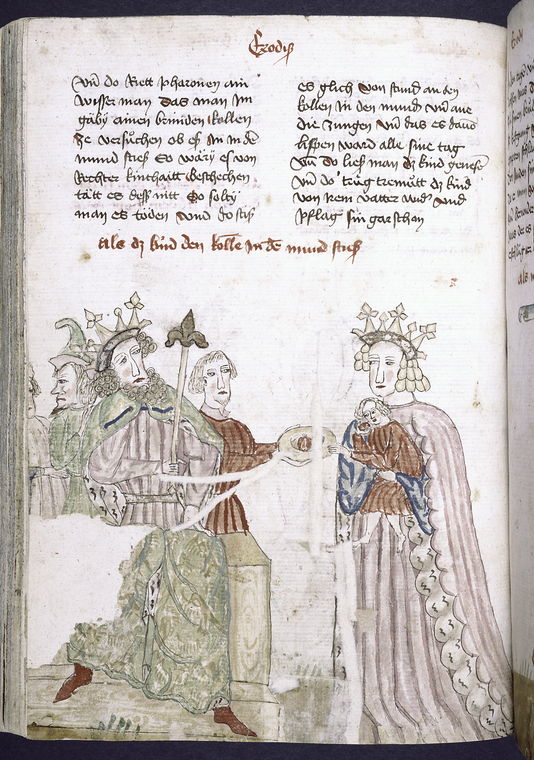 Exodus
Vnd do Rett pharonen ain
wisser man das man Im
gäb ainen brinnden kollen
Ze versůchen ob es In in den
mund stieß So wär es von
Rechter kinthait beschechen
tätt es deß nitt So solt
man es töden vnd do stiß
es glich von stund an den
kollen in den mund vnd
die Zungen vnd das es
lispen ward alle sine tag
vnd do ließ man dz kind genese
vnd do trůg dz kind
von Irem vatter vnd
pflag sin gar schon
als dz kind den kolle In de mund stieß